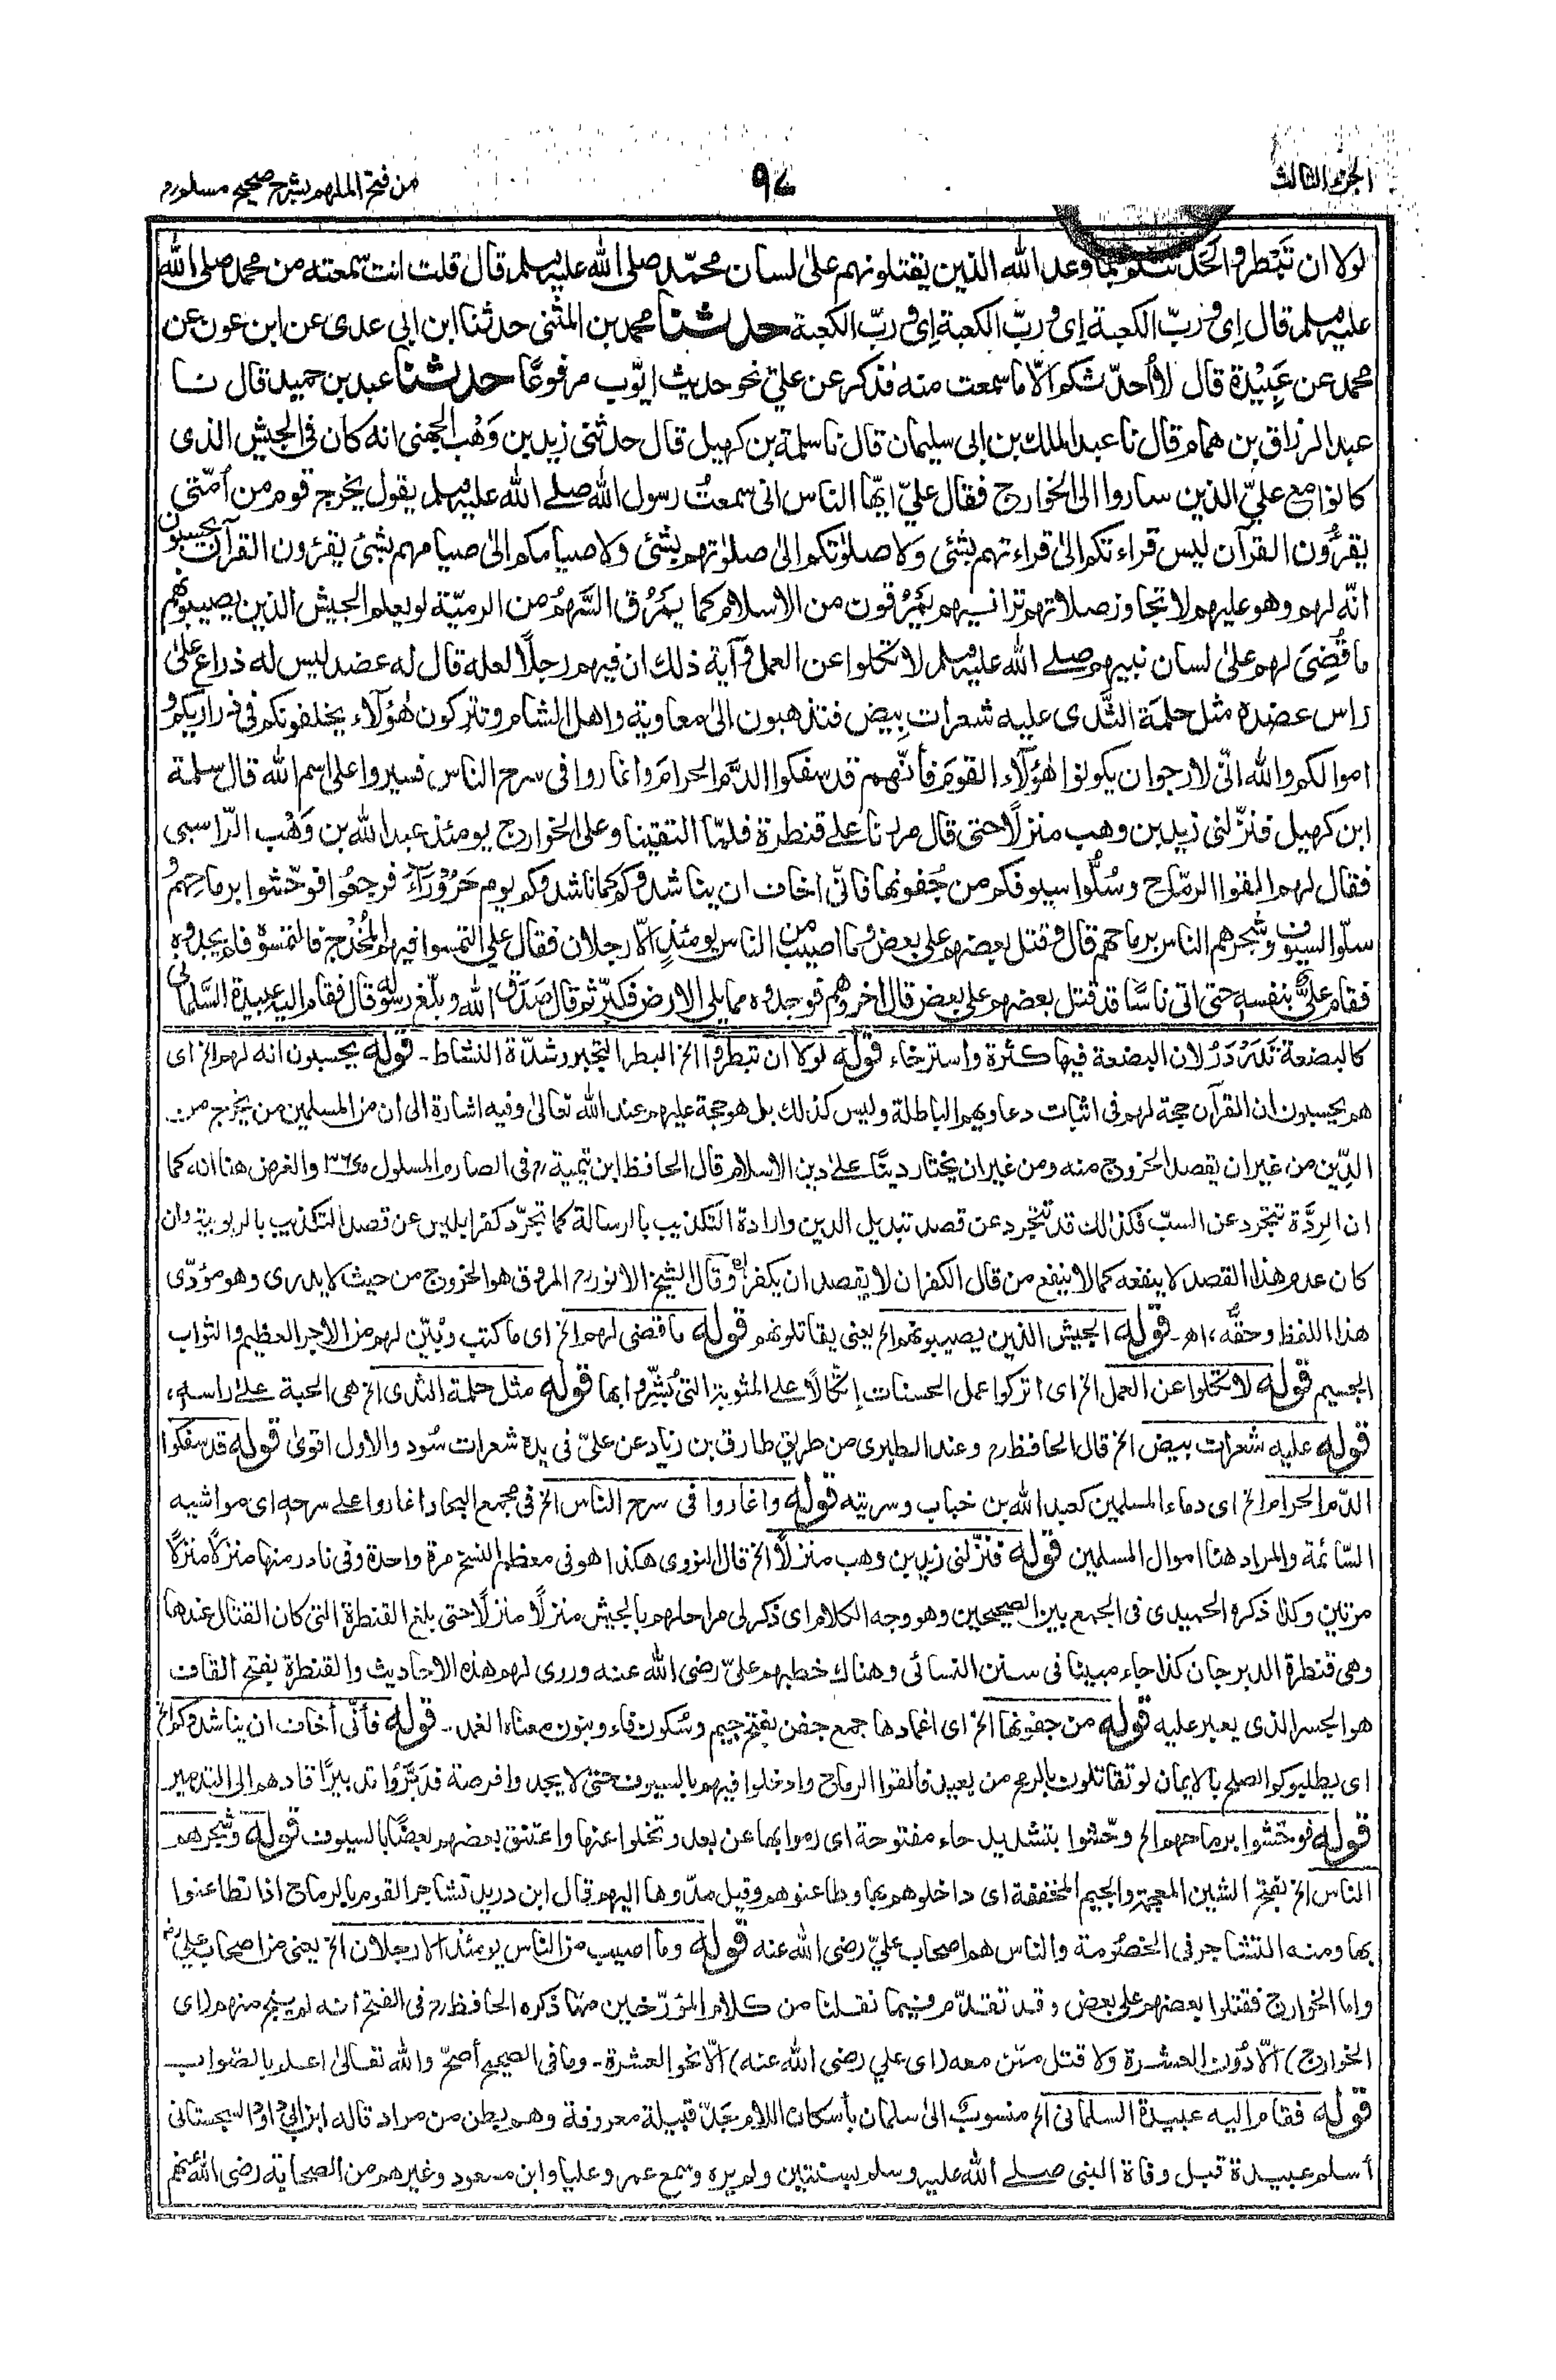 الجزء الثالث
٩٧
من فتح الملهم بشرح صحيح مسلم
لولا ان تَبْطَروا لَحَدّثتكم بما وعد الله الذين يقتلونهم على لسان محمّد صلى الله عليه وسلم قال قلت انت سمعته من محمد صلى الله
عليه وسلم قال اِى وربّ الكعبة اِى وربّ الكعبة اِى وربّ الكعبة حدثنا محمد بن المثنى حدثنا ابن ابى عدى عن ابن عون عن
محمد عن عَبِيْدة قال لا أُحدّثكم الّا ما سمعت منه فذكر عن علىّ نحو حديث ايّوب مرفوعًا حدثنا عبد بن حميد قال نا
عبد الرزاق بن همام قال نا عبد الملك بن ابى سليمان قال نا سلمة بن كهيل قال حدثنى زيد بن وَهْب الجهنى انه كان فى الجيش الذى
كانوا مع علىّ الذين ساروا الى الخوارج فقال علىّ ايّها الناس انى سمعتُ رسول الله صلے الله عليه وسلم يقول يخرج قوم من اُمّتى
يقرؤون القرآن ليس قراءتكم الىٰ قراءتهم بشئ ولا صلوٰتكم الىٰ صلوٰتهم بشئ ولا صيامكم الىٰ صيامهم بشئ يقرؤن القرآن يحسبون
انّه لهم وهو عليهم لا تجاوز صلاتهم تراقيهم يَمْرُقون من الاسلام كما يَمْرُق السَّهْمُ من الرميّة لو يعلم الجيش الذين يصيبونهم
ما قُضِىَ لهم علىٰ لسان نبيهم صلے الله عليه وسلم لاتكلوا عن العمل وآية ذلك ان فيهم رجلًا لعله قال له عضد ليس له ذراع علىٰ
راس عضده مثل حلمَة الثَّدى عليه شعرات بِيض فتذهبون الىٰ معاوية واهل الشام وتتركون هٰؤلآء يخلفونكم فى ذراريكم و
اموالكم والله انّى لارجو ان يكونوا هٰؤلآء القومَ فأنّهم قد سفكوا الدَّم الحرامَ واغاروا فى سرح الناس فسيروا على اسم الله قال سلمة
ابن كهيل فنزّلنى زيد بن وهب منزلًا حتى قال مررنا علے قنطرة فلمّا التقينا وعلى الخوارج يومئذ عبد الله بن وَهْب الرّاسبى
فقال لهم القوا الرّماح وسُلُّوا سيوفكم من جُفونها فانّى اخاف ان يناشدوكم كما ناشدوكم يوم حَرُوْرَآءَ فرجعُوا فوحّشوا برماحهمْ و
سلّوا السيوف وشجرهم الناس برماحهم قال وقتل بعضهم على بعض وما اصيب من الناس يومئذٍ الّا رجلان فقال علي التمسوا فيهم المُخْدَج فالتمسوه فلم يجدوه
فقام علىٌّ بنفسه حتى اتى ناسًا قد قتل بعضهم على بعض قال اخروهم فوجدوه مما يلى الارض فكبّر ثم قال صَدَق الله وبلّغ رسوله قال فقام اليه عبيدة السَّلمانى
كالبضعة تَدَرْدَرُ لان البضعة فيها كثرة واسترخاء قوله لولا ان تبطروا الخ البطر التجبر وشدّة النشاط ـ قوله يحسبون انه لهم الخ اى
هم يحسبون ان القرآن حجة لهم فى اثبات دعاويهم الباطلة وليس كذلك بل هو حجة عليهم عند الله تعالىٰ وفيه اشارة الى ان من المسلمين من يخرج من
الدِّين من غير ان يقصد الخروج منه ومن غير ان يختار دينًا علے دين الاسلام قال الحافظ ابن تيمية رح فى الصارم المسلول والغرض هنا انه كما
ان الرِدَّة تتجرد عن السبّ فكذالك قد تتجرد عن قصد تبديل الدين وارادة التكذيب بالرسالة كما تجرّد كفر ابليس عن قصد التكذيب بالربوبية وان
كان عدم هذا القصد لا ينفعه كما لا ينفع من قال الكفر ان لا يقصد ان يكفر اه وقال الشيخ الانور رح المروق هو الخروج من حيث لا يدرى وهو مؤدّى
هذا اللفظ وحقّه، اهـ ـ قوله الجيش الذين يصيبونهم الخ يعنى يقاتلونهم قوله ما قضى لهم الخ اى ما كتب وبُيّن لهم من الاجر العظيم والثواب
الجسيم قوله لاتكلوا عن العمل الخ اى اتركوا عمل الحسنات اِتّكالًا على المثوبة التى بُشِّروا بها قوله مثل حلمة الثدى الخ هى الحبة علے راسه،
قوله عليه شعرات بيض الخ قال الحافظ رح وعند الطبرى من طريق طارق بن زياد عن علىّ فى يده شعرات سُود والاول اقوىٰ قوله قد سفكوا
الدّم الحرام الخ اى دماء المسلمين كعبد الله بن خباب وسريته قوله واغاروا فى سرح الناس الخ فى مجمع البحار اغاروا علے سرحه اى مواشيه
السّائمة والمراد هنا اموال المسلمين قوله فنزّلنى زيد بن وهب منزلًا الخ قال النووى هكذا هو فى معظم النسخ مرة واحدة وفى نادر منها منزلًا منزلًا
مرتين وكذا ذكره الحميدى فى الجمع بين الصحيحين وهو وجه الكلام اى ذكر لى مراحلهم بالجيش منزلًا منزلًا حتى بلغ القنطرة التى كان القتال عندها
وهى قنطرة الدبرجان كذا جاء مبينا فى سنن النسائى وهناك خطبهم علىّ رضى الله عنه وروى لهم هذه الاحاديث والقنطرة بفتح القاف
هو الجسر الذى يعبر عليه قوله من جفونها الخ اى اغمادها جمع جفن بفتح جيم وسُكون فاء وبنون معناه الغمد ـ قوله فأنّى أخاف ان يناشدوكم الخ
اى يطلبوكم الصلح بالايمان لو تقاتلون بالرمح من بعيد فألقوا الرماح وادخلوا فيهم بالسيوف حتى لا يجدوا فرصة فدَبَّرُوا تدبيرًا قادهم الى التدمير
قوله فوحّشوا برماحهم الخ وحّشوا بتشديد حاء مفتوحة اى رموا بها عن بعد وتخلوا عنها واعتنق بعضهم بعضًا بالسيوف قوله وشجرهم
الناس الخ بفتح الشين المعجمة والجيم المخففة اى داخلوهم بها وطاعنوهم وقيل مدّوها اليهم قال ابن دريد تشاجر القوم بالرماح اذا تطاعنوا
بها ومنه التشاجر فى الخصُومة والناس هم اصحاب علىّ رضى الله عنه قوله وما اصيب من الناس يومئذ الا رجلان الخ يعنى من اصحاب على رض
واما الخوارج فقتلوا بعضهم على بعض وقد تقدّم فيما نقلنا من كلام المؤرّخين مّما ذكره الحافظ رح فى الفتح انه لم ينج منهم (اى
الخوارج) الّا دُوْن العشرة ولا قتل ممّن معه (اى علي رضى الله عنه) الّا نحو العشرة ـ وما فى الصحيح أصحّ والله تعالىٰ اعلم بالصّواب
قوله فقام اليه عبيدة السلمانى الخ منسوب الىٰ سلمان بأسكان اللام جَدّ قبيلة معروفة وهم بطن من مراد قاله ابن ابى داود السجستانى
أسلم عبيدة قبل وفاة النبى صلے الله عليه وسلم بسنتين ولم يره وسمع عمر وعليا وابن مسعود وغيرهم من الصحابة رضى الله عنهم